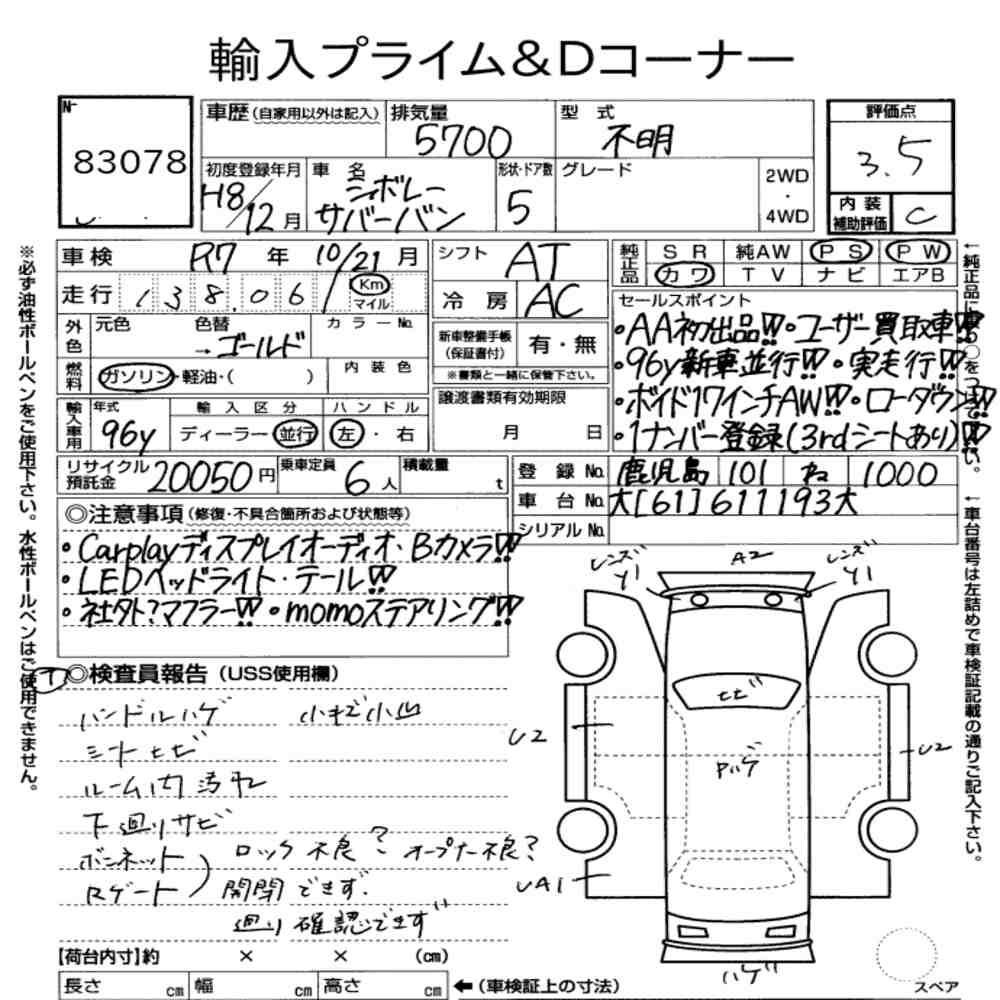 輸入プライム&Dコーナー
No.
83078
車歴(自家用以外は記入)
排気量
5700
型 式
不明
評価点
3.5
初度登録年月
H8/12月
車 名
シボレー
サバーバン
形状・ドア数
5
グレード
2WD
・
4WD
内 装
補助評価
C
車検
R7 年 10/21 月
シフト
AT
純正品
SR 純AW PS PW
カワ TV ナビ エアB
走行
138.061
Km
マイル
冷 房
AC
セールスポイント
・AA初出品!!・ユーザー買取車!!
・96y新車並行!!・実走行!!
・ボイド17インチAW!!・ローダウン!!
・1ナンバー登録(3rdシートあり)!!
外色
元色 色替
→ゴールド
カラーNo.
新車整備手帳
(保証書付)
有・無
※書類と一緒に保管下さい。
燃料
ガソリン・軽油・( )
内 装 色
輸入車用
年式
96y
輸 入 区 分
ディーラー・並行
ハ ン ド ル
左・右
譲渡書類有効期限
月 日
リサイクル
預託金
20050円
乗車定員
6人
積載量
t
登 録 No.
鹿児島 101 ね 1000
車 台 No.
大[61]611193大
シリアル No.
◎注意事項(修復・不具合箇所および状態等)
・Carplayディスプレイオーディオ・Bカメラ!!
・LEDヘッドライト・テール!!
・社外?マフラー!!・momoステアリング!!
◎検査員報告(USS使用欄)
ハンドルハゲ 小キズ小凹
シートヒビ
ルーム内汚れ
下廻りサビ
ボンネット
Rゲート
ロック不良? オープナー不良?
開閉できず.
廻り確認できず
レンズ
Y1
A2
レンズ
Y1
ヒビ
U2
Pハゲ
U2
UA1
ハゲ
【荷台内寸】約 × × (cm)
長さ cm 幅 cm 高さ cm
←(車検証上の寸法)
スペア
※必ず油性ボールペンをご使用下さい。水性ボールペンはご使用できません。
↑車台番号は左詰めで車検証記載の通りご記入下さい。